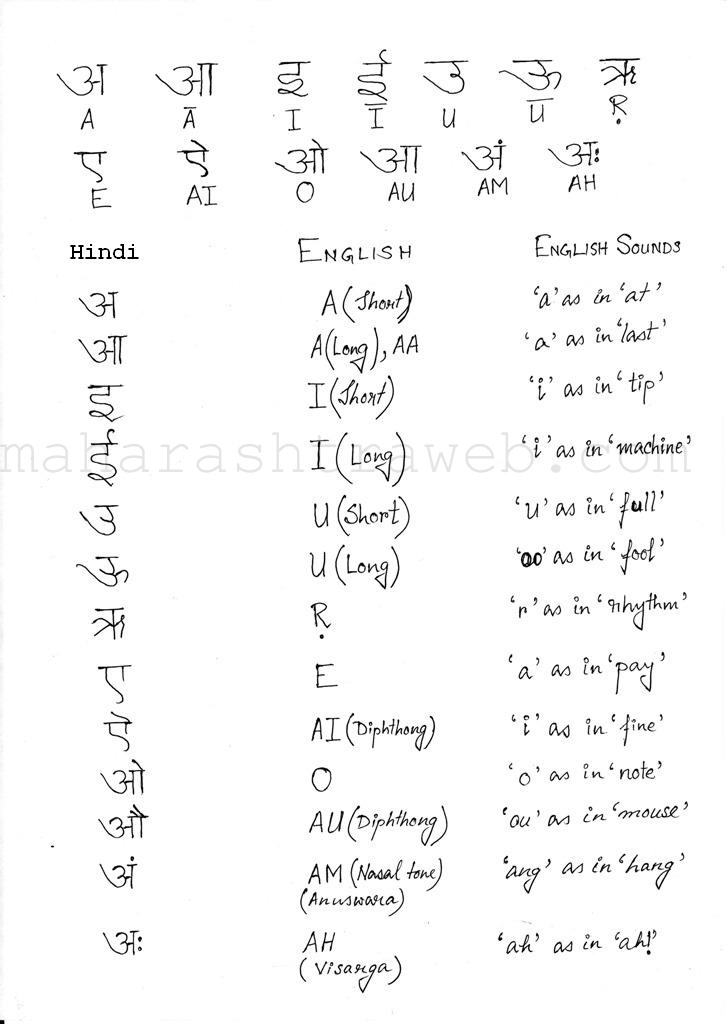 अ आ इ ई उ ऊ ऋ
A Ā I Ī U Ū Ṛ
ए ऐ ओ आ अं अः
E AI O AU AM AH
Hindi ENGLISH ENGLISH SOUNDS
अ A (Short) 'a' as in 'at'
आ A (Long), AA 'a' as in 'last'
इ I (Short) 'i' as in 'tip'
ई I (Long) 'i' as in 'machine'
उ U (Short) 'u' as in 'full'
ऊ U (Long) 'oo' as in 'fool'
ऋ Ṛ 'r' as in 'rhythm'
ए E 'a' as in 'pay'
ऐ AI (Diphthong) 'i' as in 'fine'
ओ O 'o' as in 'note'
औ AU (Diphthong) 'ou' as in 'mouse'
अं AM (Nasal tone) 'ang' as in 'hang'
(Anuswara)
अः AH 'ah' as in 'ah!'
(Visarga)
maharashtraweb.com